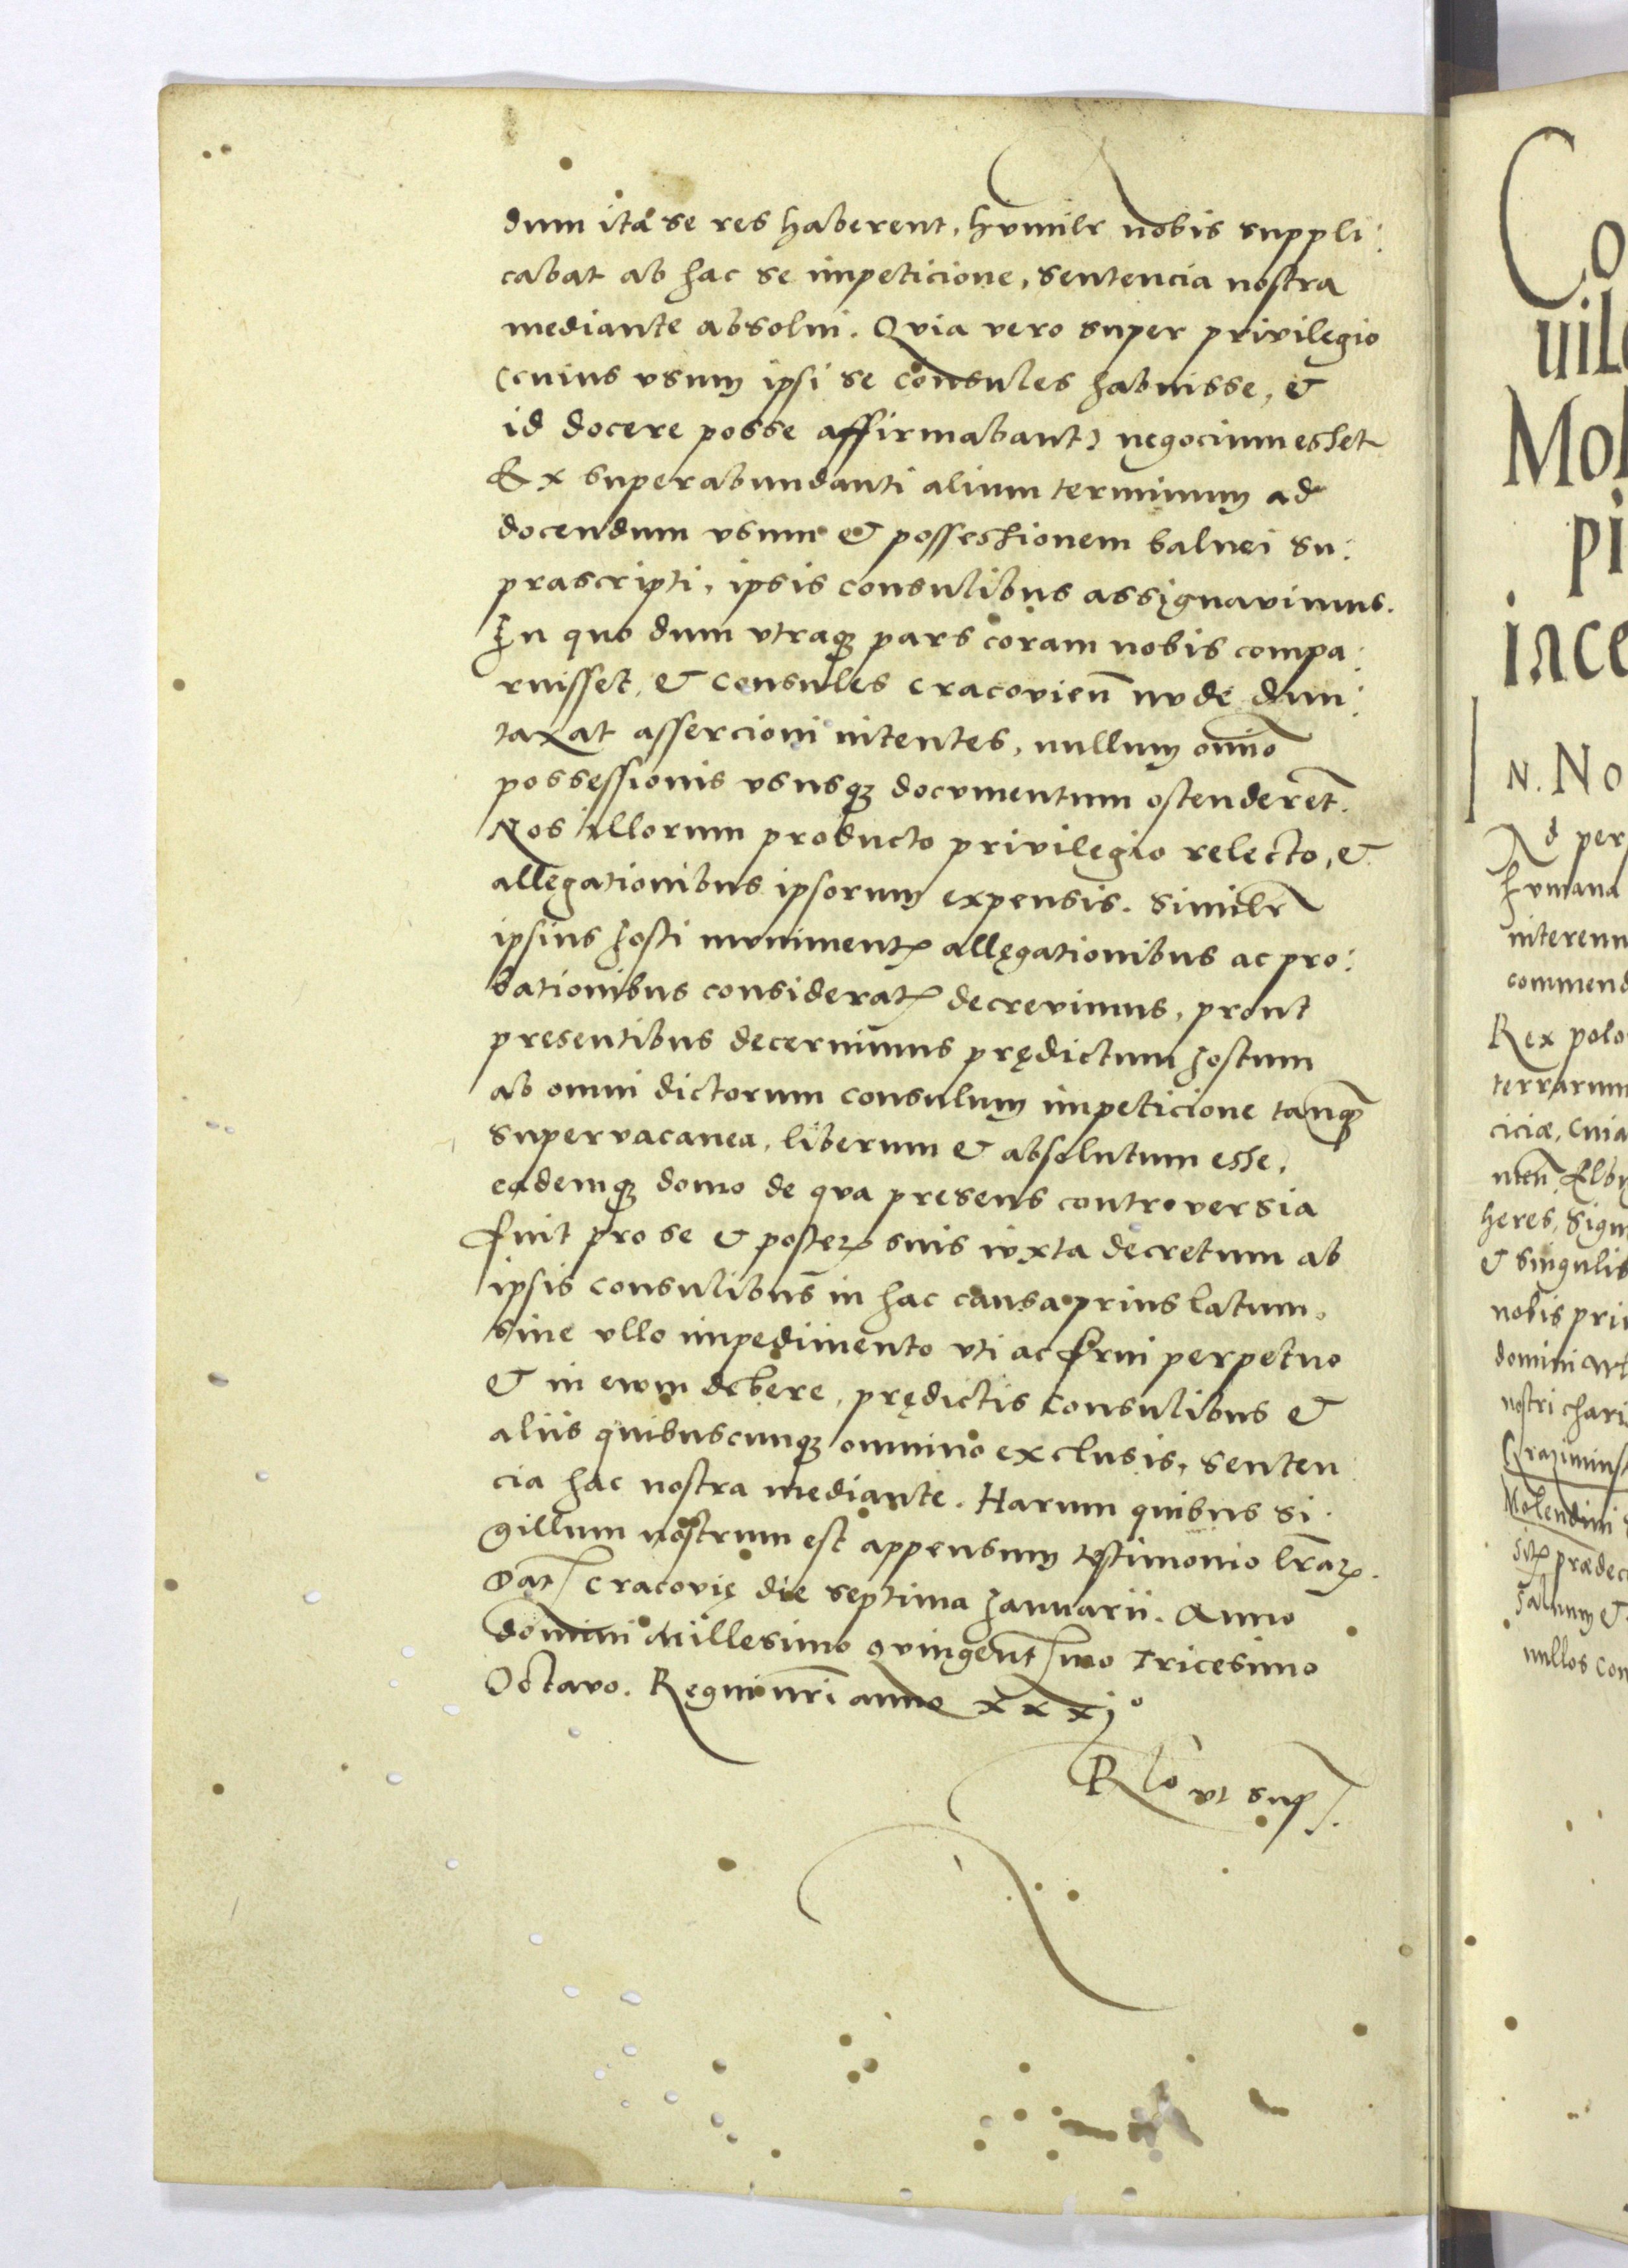 dum ita se res haberent, humilr nobis suppli:
cabat ab hac se impeticione, sentencia nostra
mediante absolui. Quia vero super privilegio
(cuius vsum ipsi se consules habuisse, &
id docere posse affirmabant) negocium esset
Ex superabundanti alium terminum ad
docendum vsum & possessionem balnei su:
prascripti, ipsis consulibus assignavimus.
In quo dum vtraqꝫ pars coram nobis compa:
ruisset, & consules cracovien̄ nude dun:
taxat assercioni nitentes, nullum om̄no
possessionis vsusqꝫ documentum ostenderet̄.
Nos illorum producto privilegio relecto, &
allegationibus ipsorum expensis. Similr̄
ipsius Josti munimentꝭ allęgationibus ac pro:
bationibus consideratꝭ decrevimus, prout
presentibus decernimus prędictum Jostum
ab omni dictorum consulum impeticione tanqꝫ
supervacanea, liberum & absolutum esse,
eademqꝫ domo de qua presens controversia
fuit pro se & posteꝝ suis iuxta decretum ab
ipsis consulibus in hac causa prius latum.
sine vllo impedimento vti ac frui perpetuo
& in ewm debere, prędictis consulibus &
aliis quibuscunqꝫ omnino exclusis, senten
cia hac nostra mediante. Harum quibus si.
gillum nostrum est appensum testimonio lr̄aꝝ.
Dat̄ Cracovię die septima Januarii. Anno
domini Millesimo quingent̄mo Tricesimo
Octavo. Regni nr̄i anno xxxjo
Rlo vt sup̄.
Co
uil
Mol
pi
ince
N. No
Ad per
humana
interenn
commend
Rex polo
terrarum
ciciæ, Cuia
nen̄. Elb
heres, Sign
& singulis
nobis pri
domini
nostri chari
Molendini
sitꝭ prædec
saluum &
nullos con